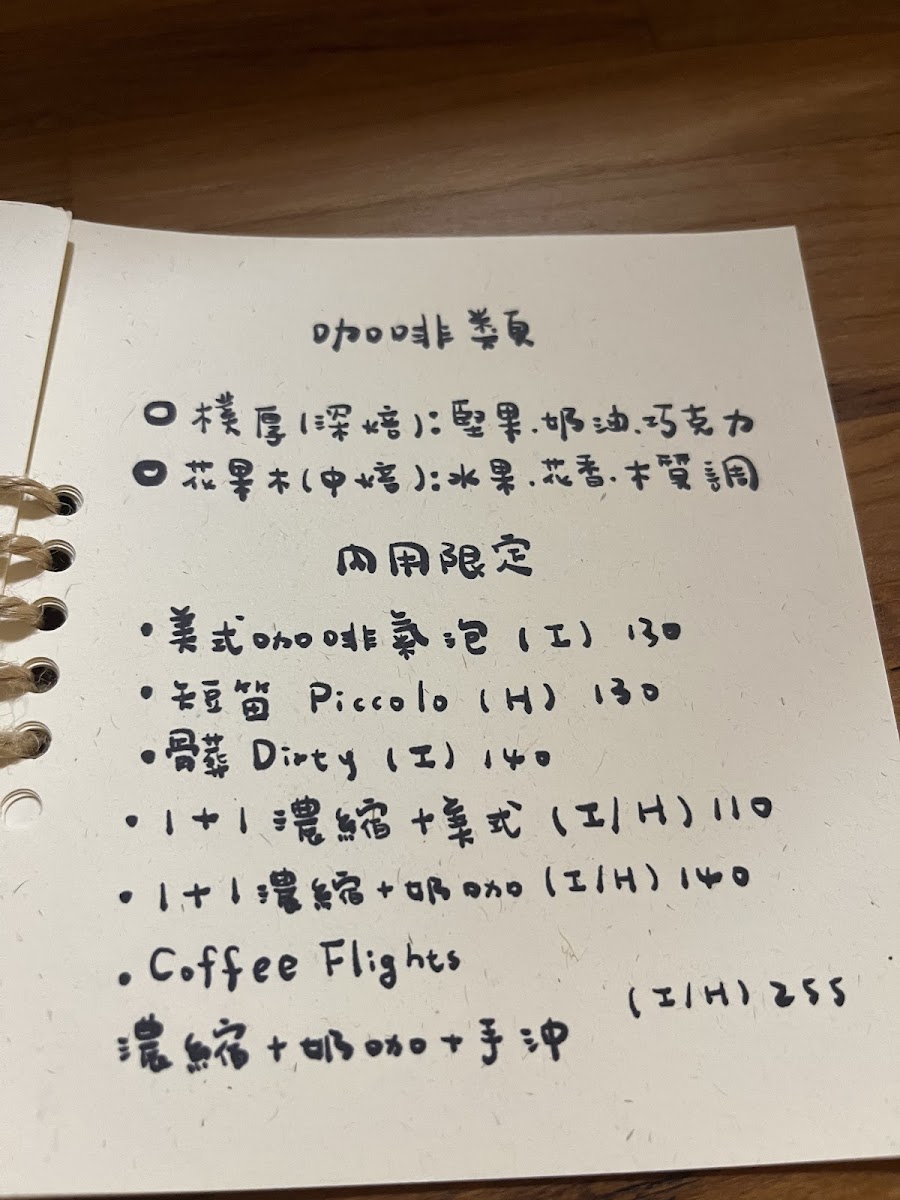 咖啡類
樸厚(深焙):堅果.奶油.巧克力
花果木(中焙):水果.花香.木質調
內用限定
・美式咖啡氣泡(I) 130
・短笛 Piccolo (H) 130
・骨葬 Dirty (I) 140
・1+1濃縮+美式(I/H) 110
・1+1濃縮+奶咖(I/H) 140
・Coffee Flights
(I/H) 255
濃縮+奶咖+手沖